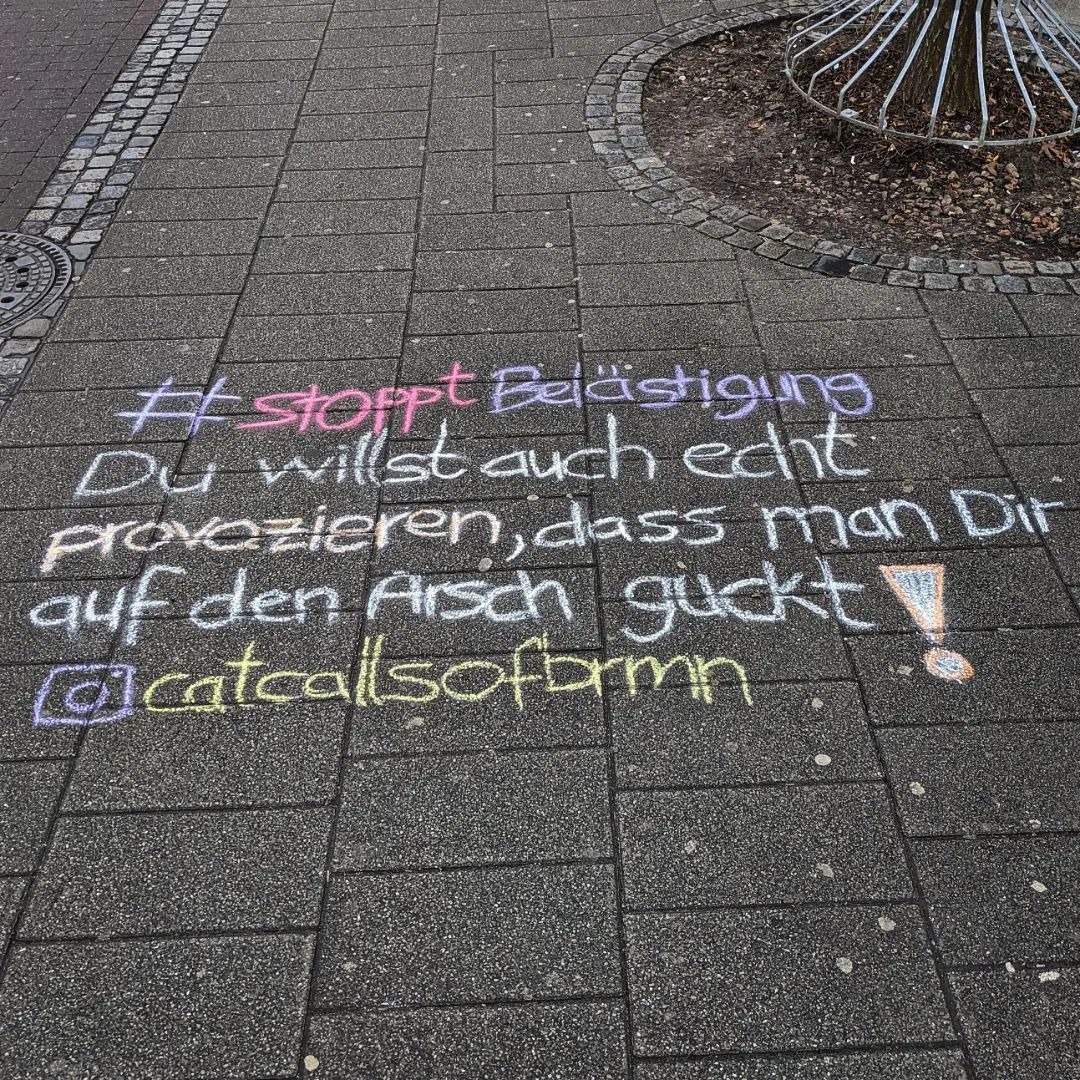 #stoppt Belästigung
Du willst auch echt
provozieren, dass man Dir
auf den Arsch guckt!
catcallsofbrmn